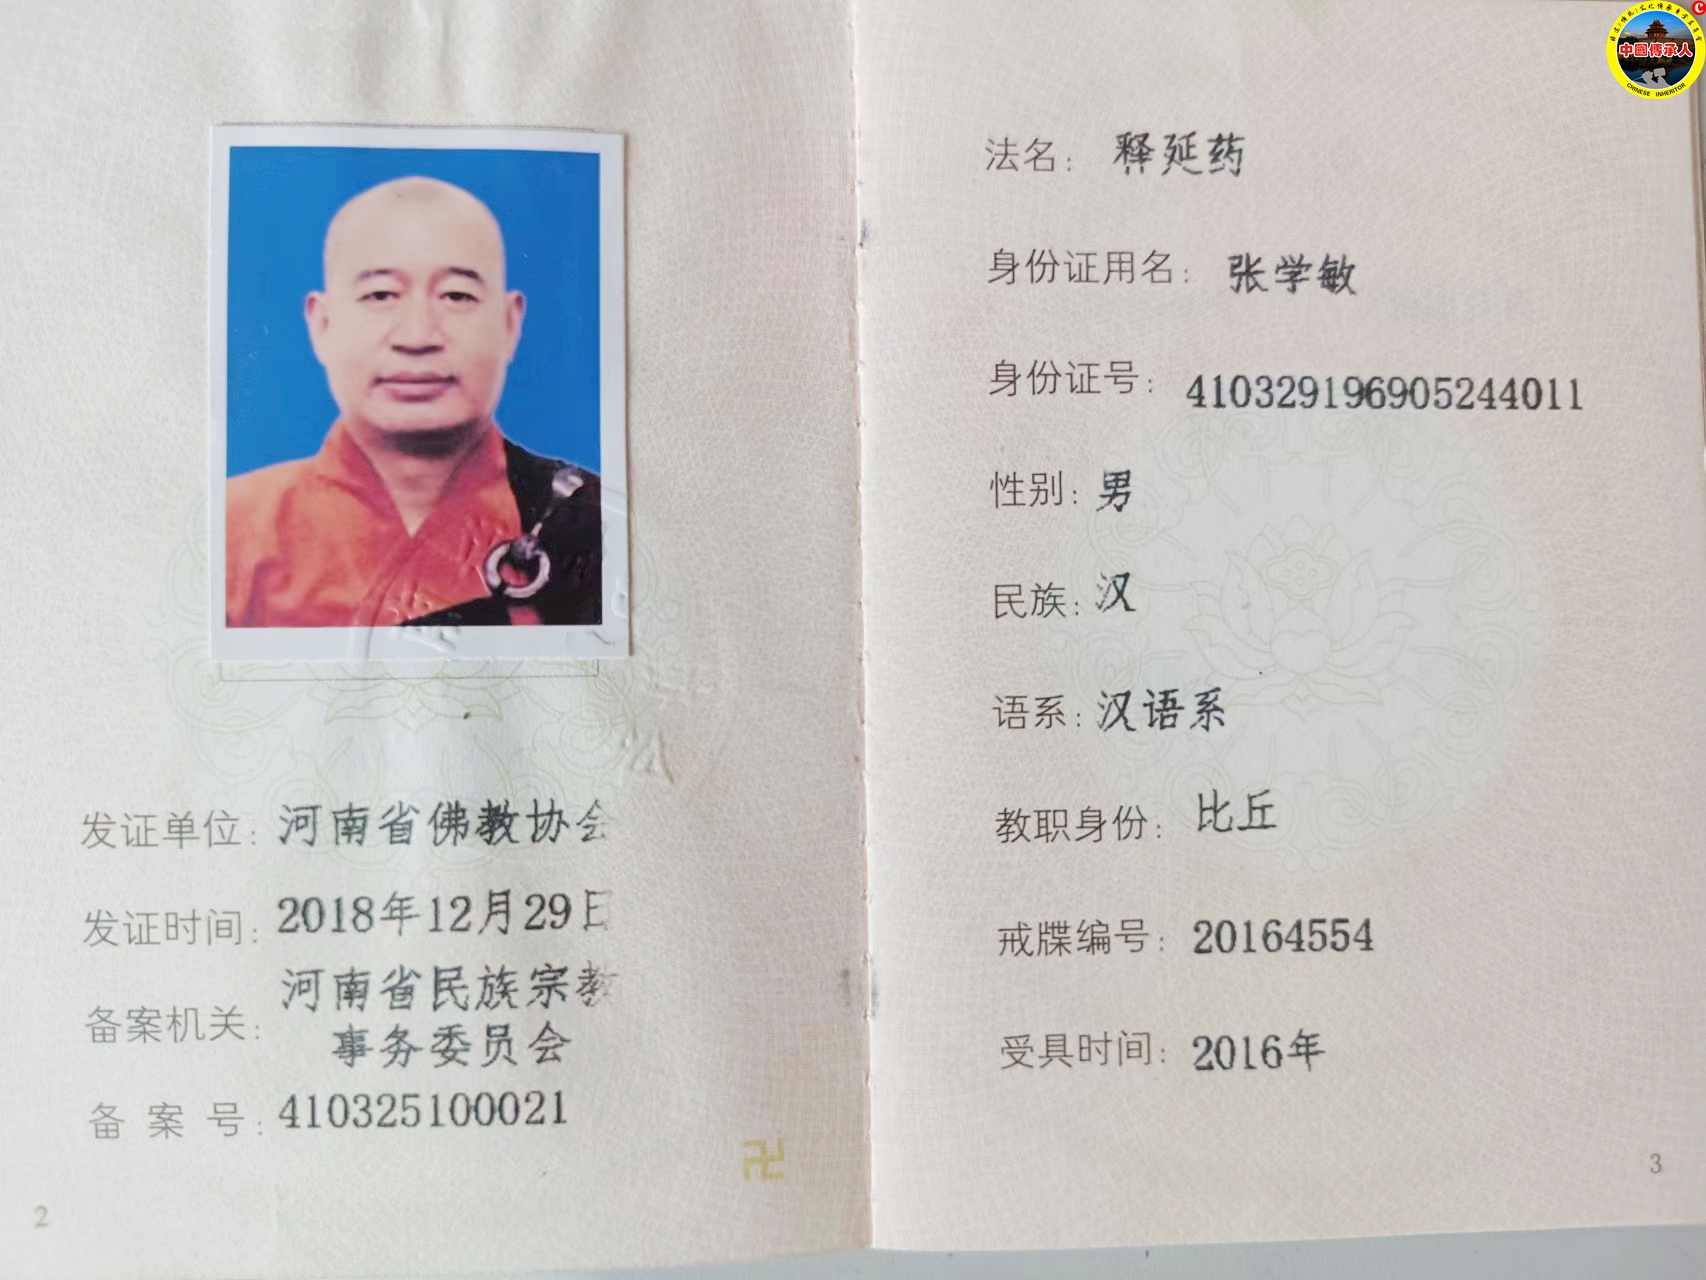 中國傳承人
CHINESE INHERITOR
发证单位：河南省佛教协会
发证时间：2018年12月29日
备案机关：河南省民族宗教
事务委员会
备 案 号：410325100021
2
法名：释延药
身份证用名：张学敏
身份证号：410329196905244011
性别：男
民族：汉
语系：汉语系
教职身份：比丘
戒牒编号：20164554
受具时间：2016年
3